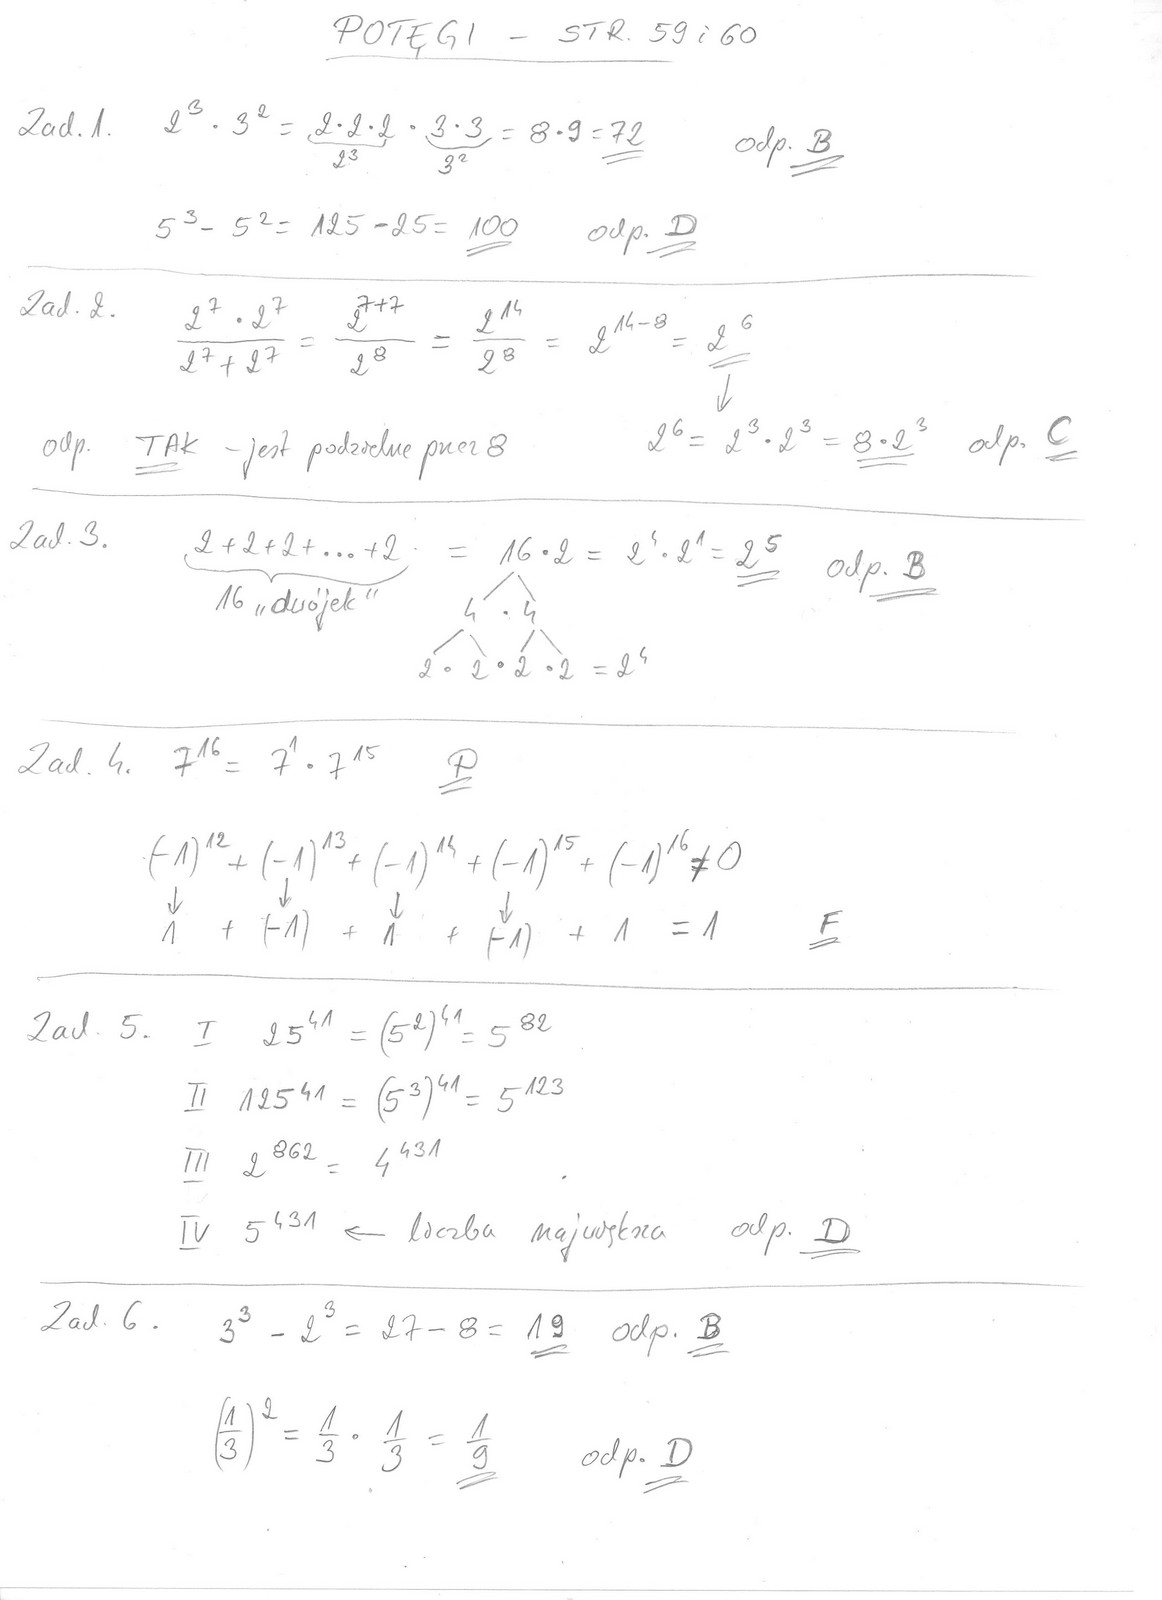 POTĘGI – STR. 59 i 60
Zad. 1. 2³ · 3² = 2·2·2 · 3·3 = 8·9 = 72 odp. B
2³ 3²
5³ – 5² = 125 – 25 = 100 odp. D
Zad. 2. (2⁷ · 2⁷)/(2⁷ + 2⁷) = 2⁷⁺⁷/2⁸ = 2¹⁴/2⁸ = 2¹⁴⁻⁸ = 2⁶
↓
odp. TAK – jest podzielne przez 8 2⁶ = 2³ · 2³ = 8 · 2³ odp. C
Zad. 3. 2+2+2+...+2 = 16 · 2 = 2⁴ · 2¹ = 2⁵ odp. B
16 „dwójek" 4 · 4
2 · 2 · 2 · 2 = 2⁴
Zad. 4. 7¹⁶ = 7¹ · 7¹⁵ P
(–1)¹² + (–1)¹³ + (–1)¹⁴ + (–1)¹⁵ + (–1)¹⁶ ≠ 0
↓ ↓ ↓ ↓
1 + (–1) + 1 + (–1) + 1 = 1 F
Zad. 5. I 25⁴¹ = (5²)⁴¹ = 5⁸²
II 125⁴¹ = (5³)⁴¹ = 5¹²³
III 2⁸⁶² = 4⁴³¹
IV 5⁴³¹ ← liczba największa odp. D
Zad. 6. 3³ – 2³ = 27 – 8 = 19 odp. B
(1/3)² = 1/3 · 1/3 = 1/9 odp. D